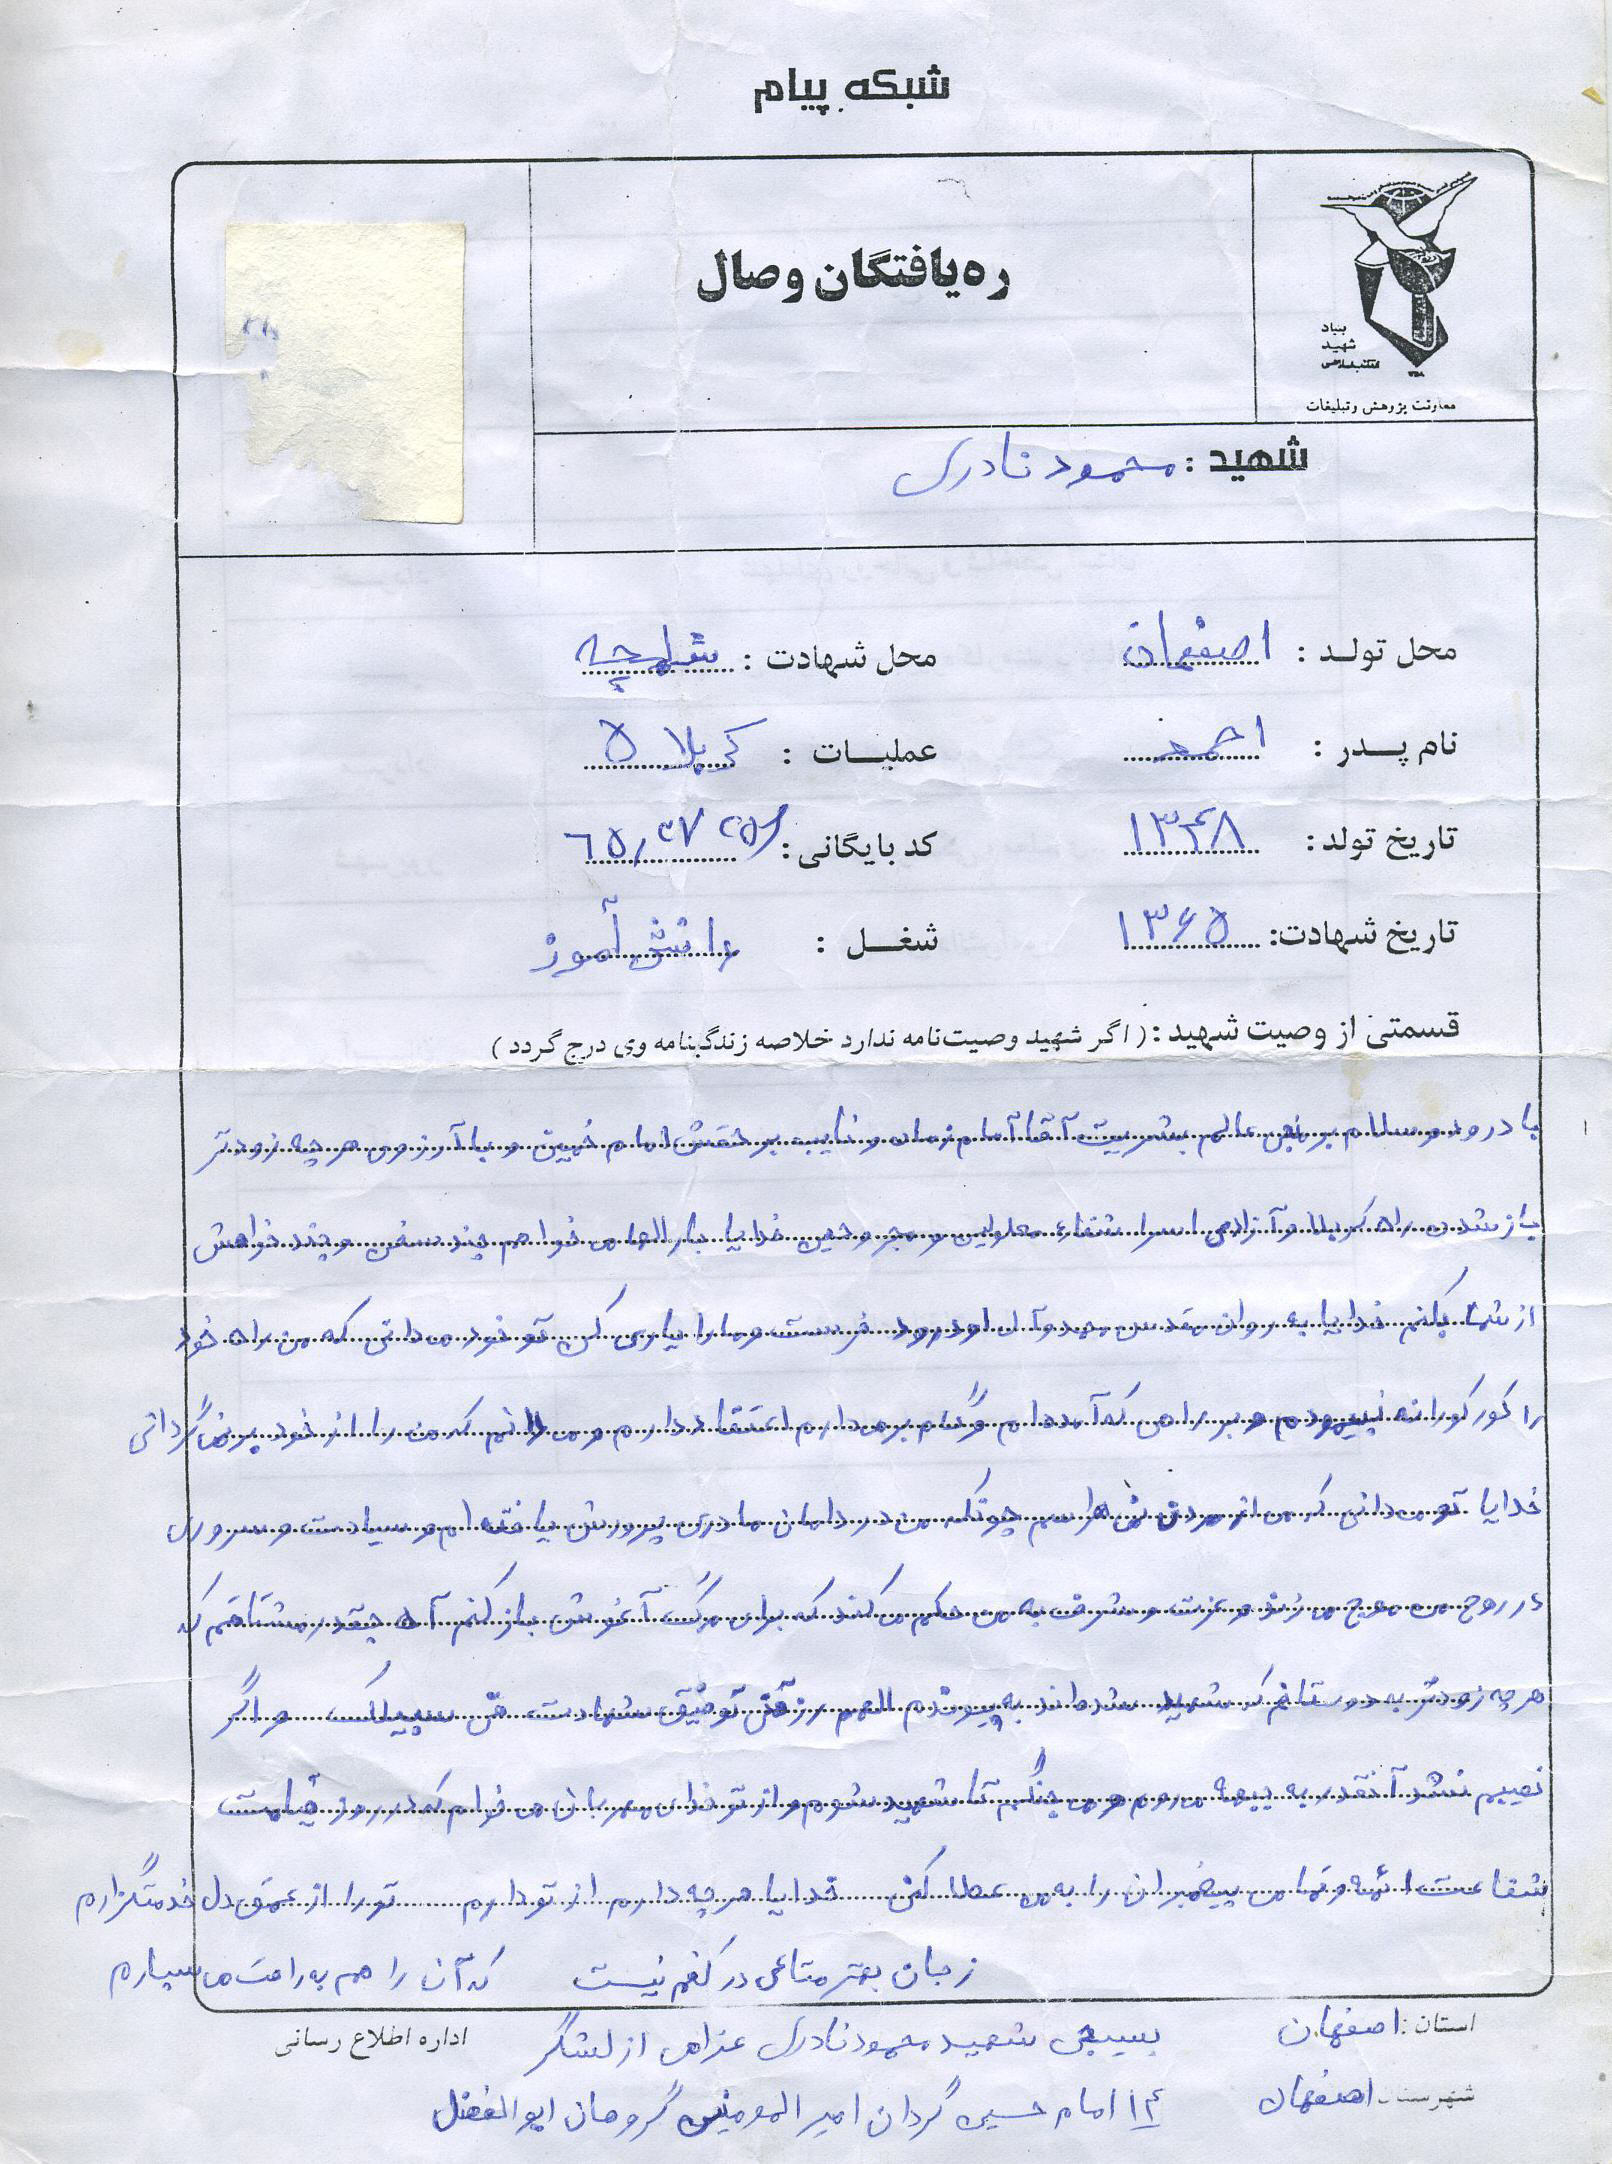 شبکه پیام
ره‌یافتگان وصال
بنیاد
شهید
معاونت پژوهش و تبلیغات
شهید : محمود نادری
محل تولد : اصفهان
محل شهادت : شلمچه
نام پدر : احمد
عملیات : کربلا ۵
تاریخ تولد : ۱۳۴۸
کد بایگانی :
تاریخ شهادت : ۱۳۶۵
شغل : دانش آموز
قسمتی از وصیت شهید : ( اگر شهید وصیت‌نامه ندارد خلاصه زندگینامه وی درج گردد )
با درود و سلام بر منجی عالم بشریت آقا امام زمان و نایب بر حقش امام خمینی و با آرزوی هر چه زودتر
باز شدن راه کربلا و آزادی اسرا شفاء معلولین و مجروحین خدایا بار الها می خواهم چند سخن و چند خواهش
از شما بکنم خدایا به روان مقدس محمد و آل او درود فرست و ما را یاری کن تو خود می دانی که من راه خود
را کورکورانه نپیمودم و بر راهی که آمده ام و گام بر می دارم اعتقاد دارم و می دانم که من را از خود بر نمی گردانی
خدایا تو می دانی که من از مردن نمی هراسم چونکه من در دامان مادری پرورش یافته ام و سیادت و سروری
در روح من موج می زند و عزت و شرف به من حکم می کند که برای مرگ آغوش باز کنم آه چقدر مشتاقم که
هر چه زودتر به دوستانم که شهید شده اند به پیوندم الهم رزقنی توفیق شهادت فی سبیلک و اگر
نصیبم نشد آنقدر به جبهه می روم و می جنگم تا شهید شوم و از تو خدای مهربان می خوام که در روز قیامت
شفاعت ائمه و تمامی پیغمبران را به من عطا کنی خدایا هر چه دارم از تو دارم تو را از عمق دل خدمتگزارم
ز جان بهتر متاعی در کفم نیست که آن را هم به راهت می سپارم
استان : اصفهان
بسیجی شهید محمود نادری اعزامی از لشگر
اداره اطلاع رسانی
شهرستان اصفهان
۱۴ امام حسین گردان امیر المومنین گروهان ابوالفضل